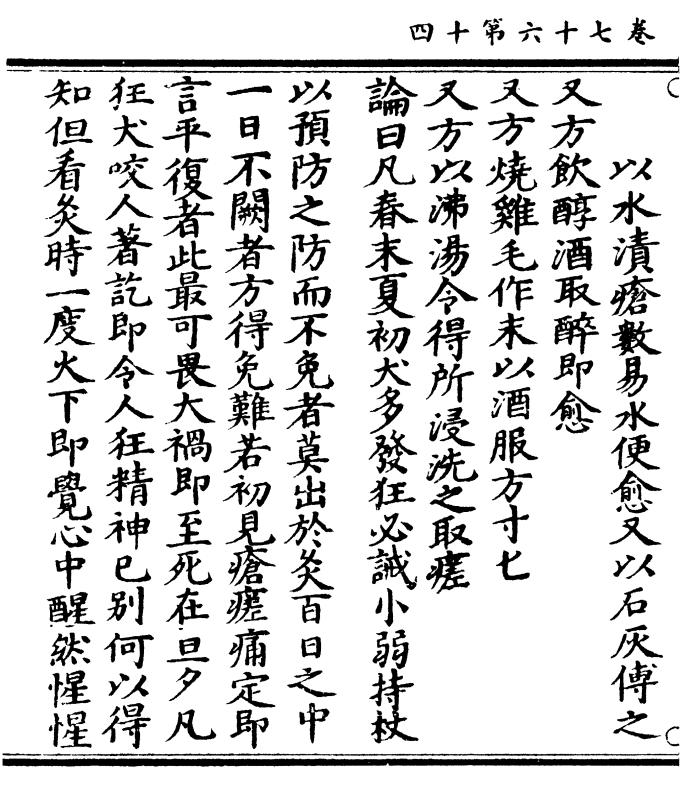 卷七十六第十四
以水漬瘡數易水便愈又以石灰傅之
又方飲醇酒取醉即愈
又方燒雞毛作末以酒服方寸匕
又方以沸湯令得所浸洗之取瘥
論曰凡春末夏初犬多發狂必誡小弱持杖
以預防之防而不免者莫出於灸百日之中
一日不闕者方得免難若初見瘡瘥痛定即
言平復者此最可畏大禍即至死在旦夕凡
狂犬咬人著訖即令人狂精神已别何以得
知但看灸時一度火下即覺心中醒然惺惺